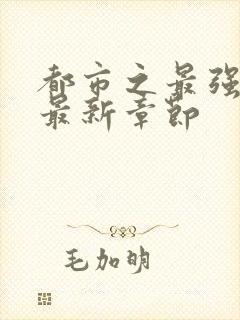 都市之最强
最新章节
毛加明